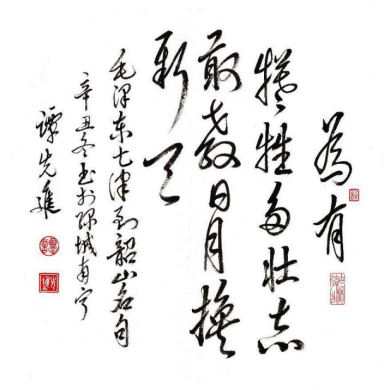 為有
犧牲多壮志
敢教日月換
新天
毛泽东七律到韶山名句
辛丑冬书於绿城南宁
谭先進